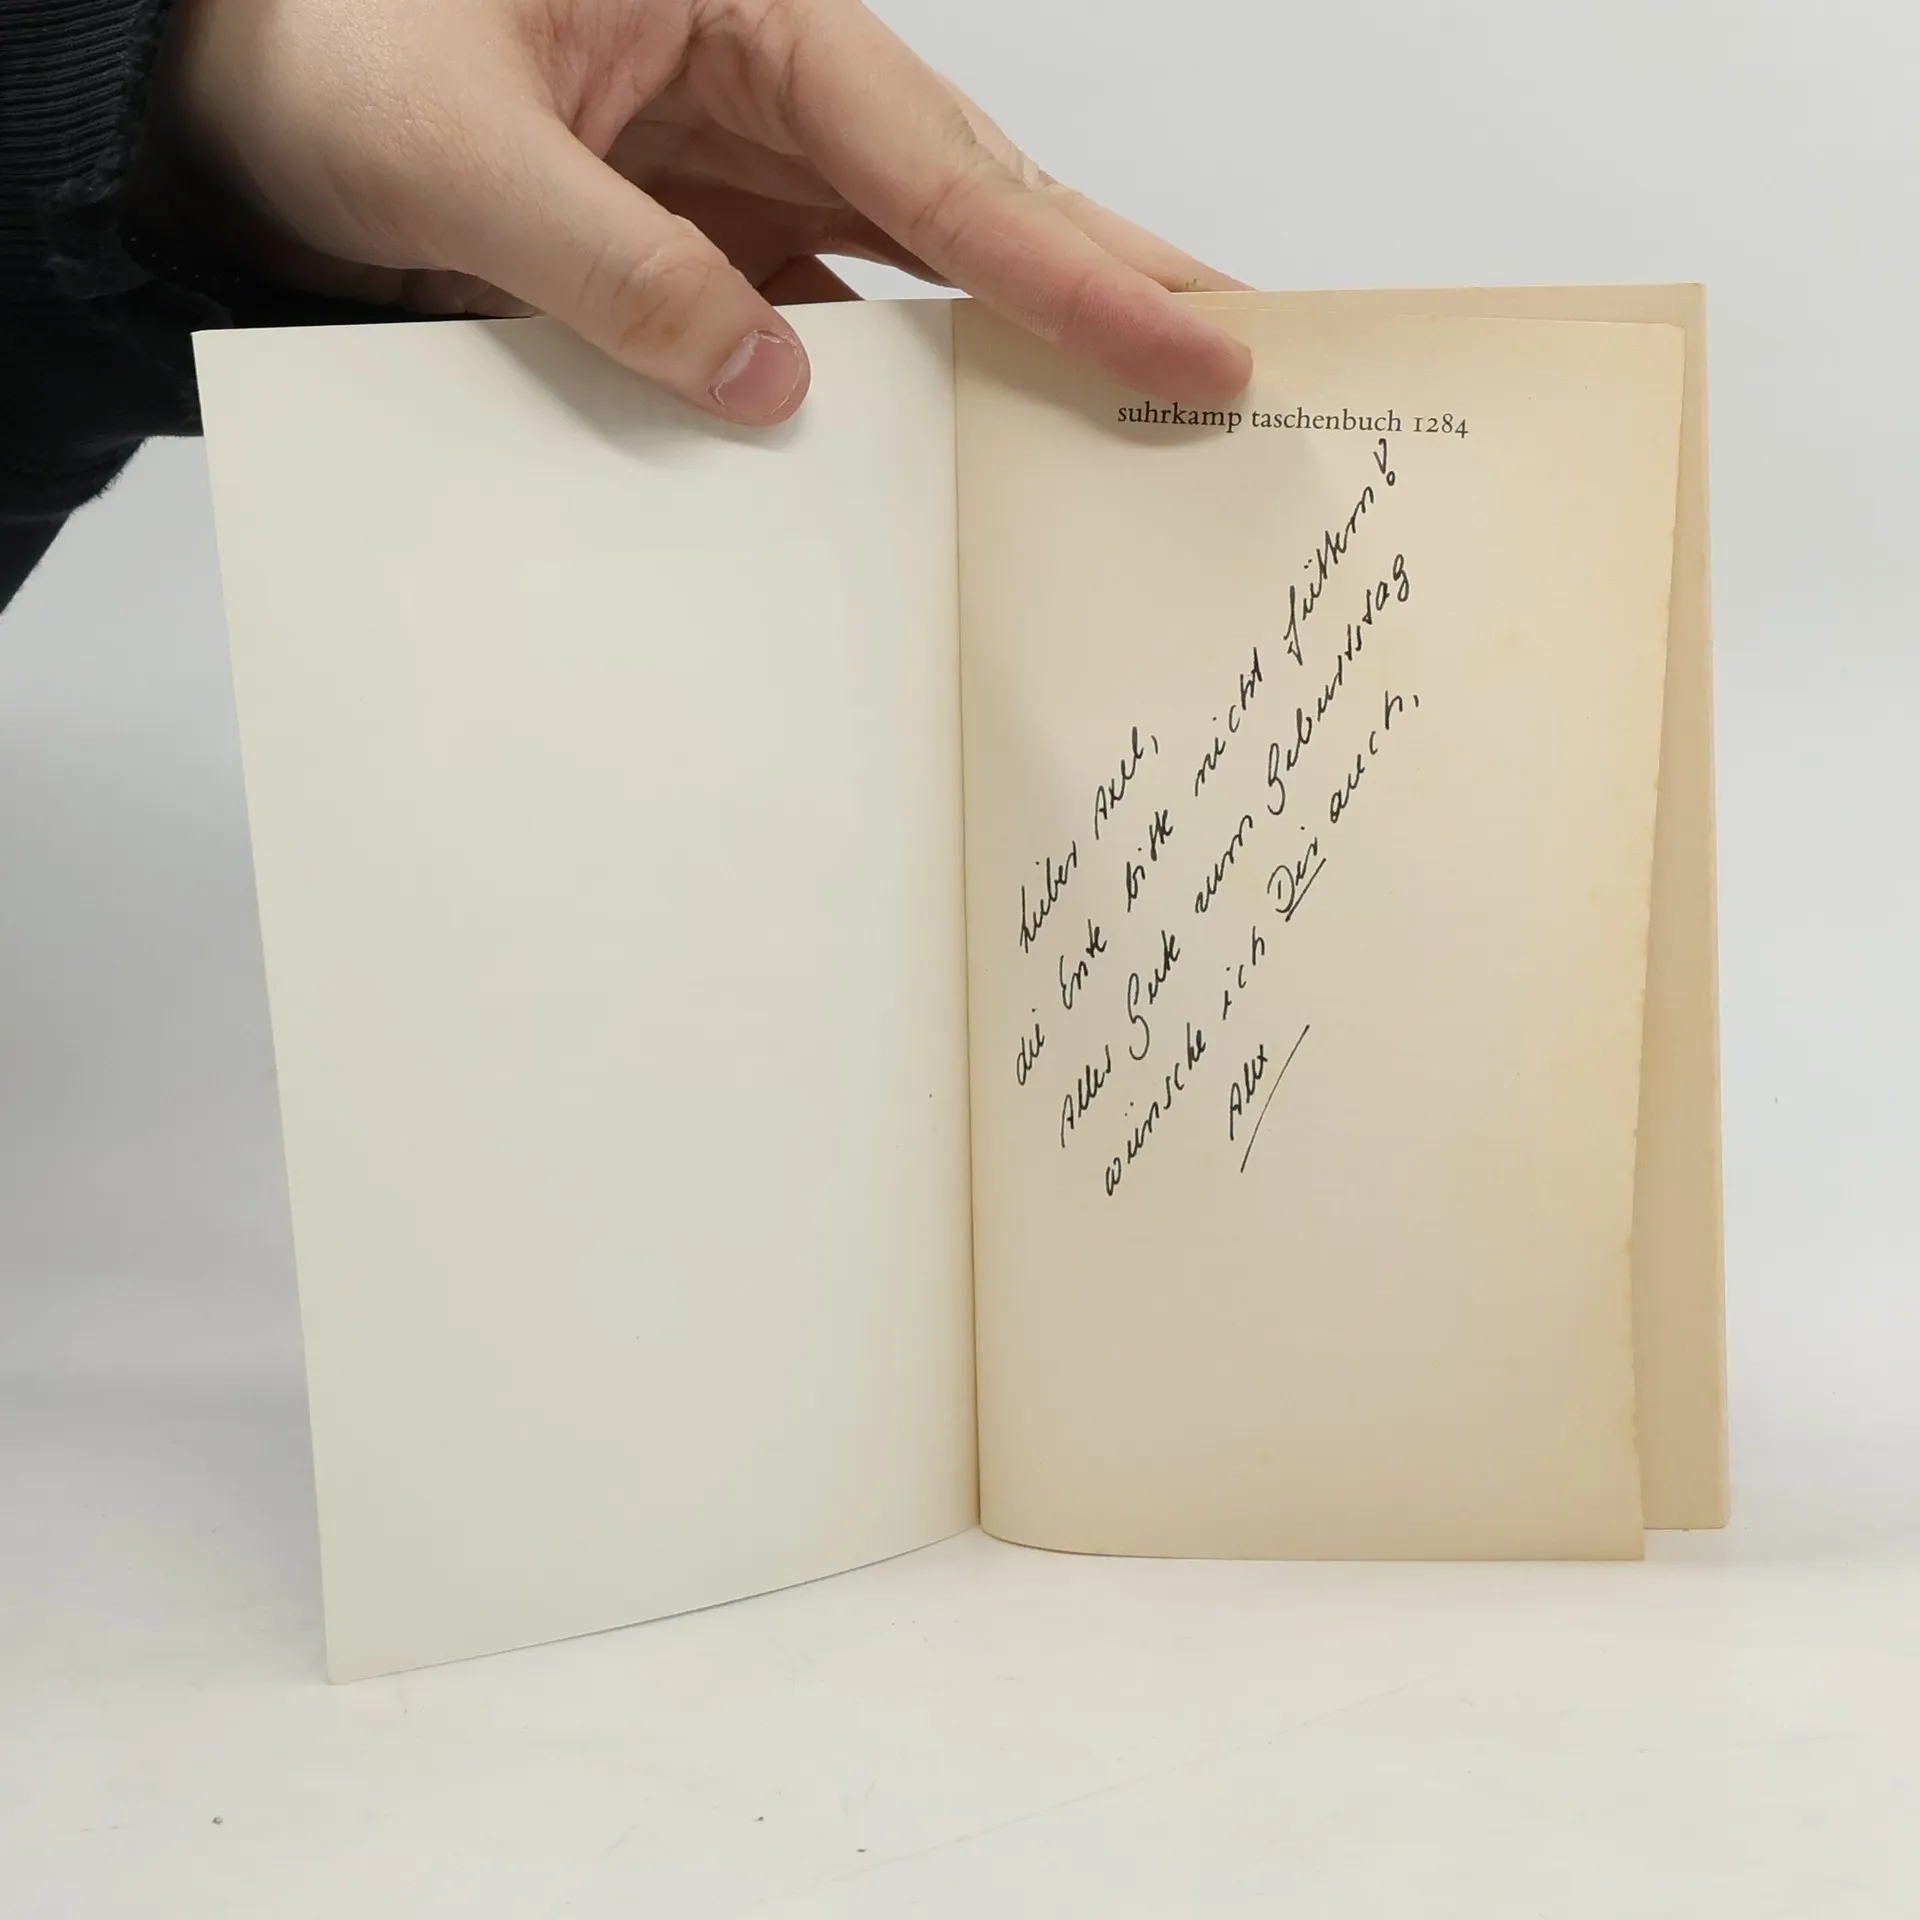 suhrkamp taschenbuch 1284
Lieber Axel,
die Ente bitte nicht füttern!
Alles Gute zum Geburtstag
wünsche ich Dir auch,
Alex